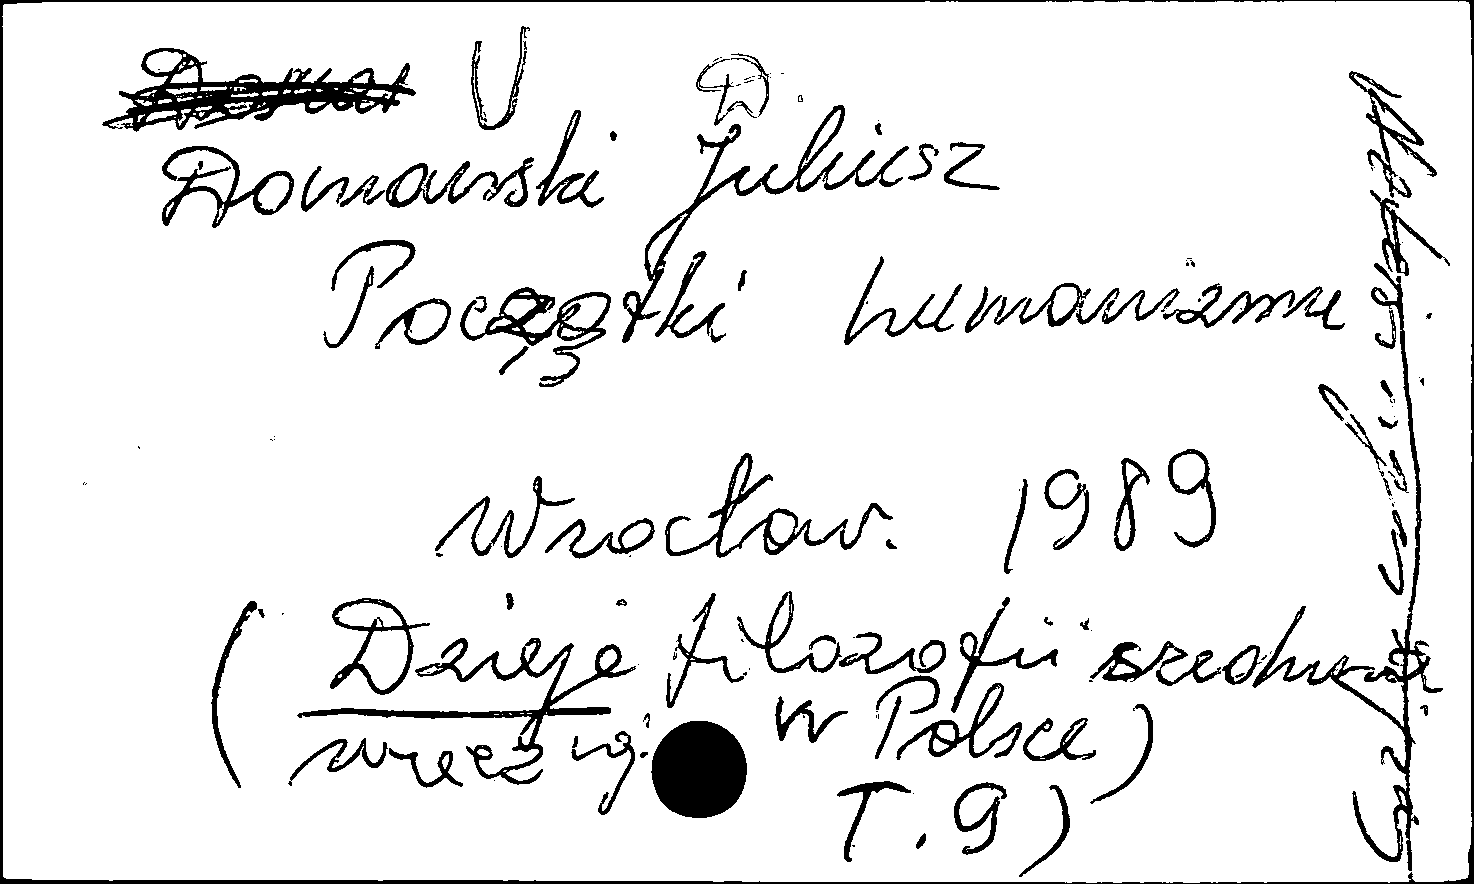 U D
Domański Juliusz
Początki humanizmu
Wrocław. 1989
( Dzieje filozofii średnio
wiecznej w Polsce )
T. 9 )